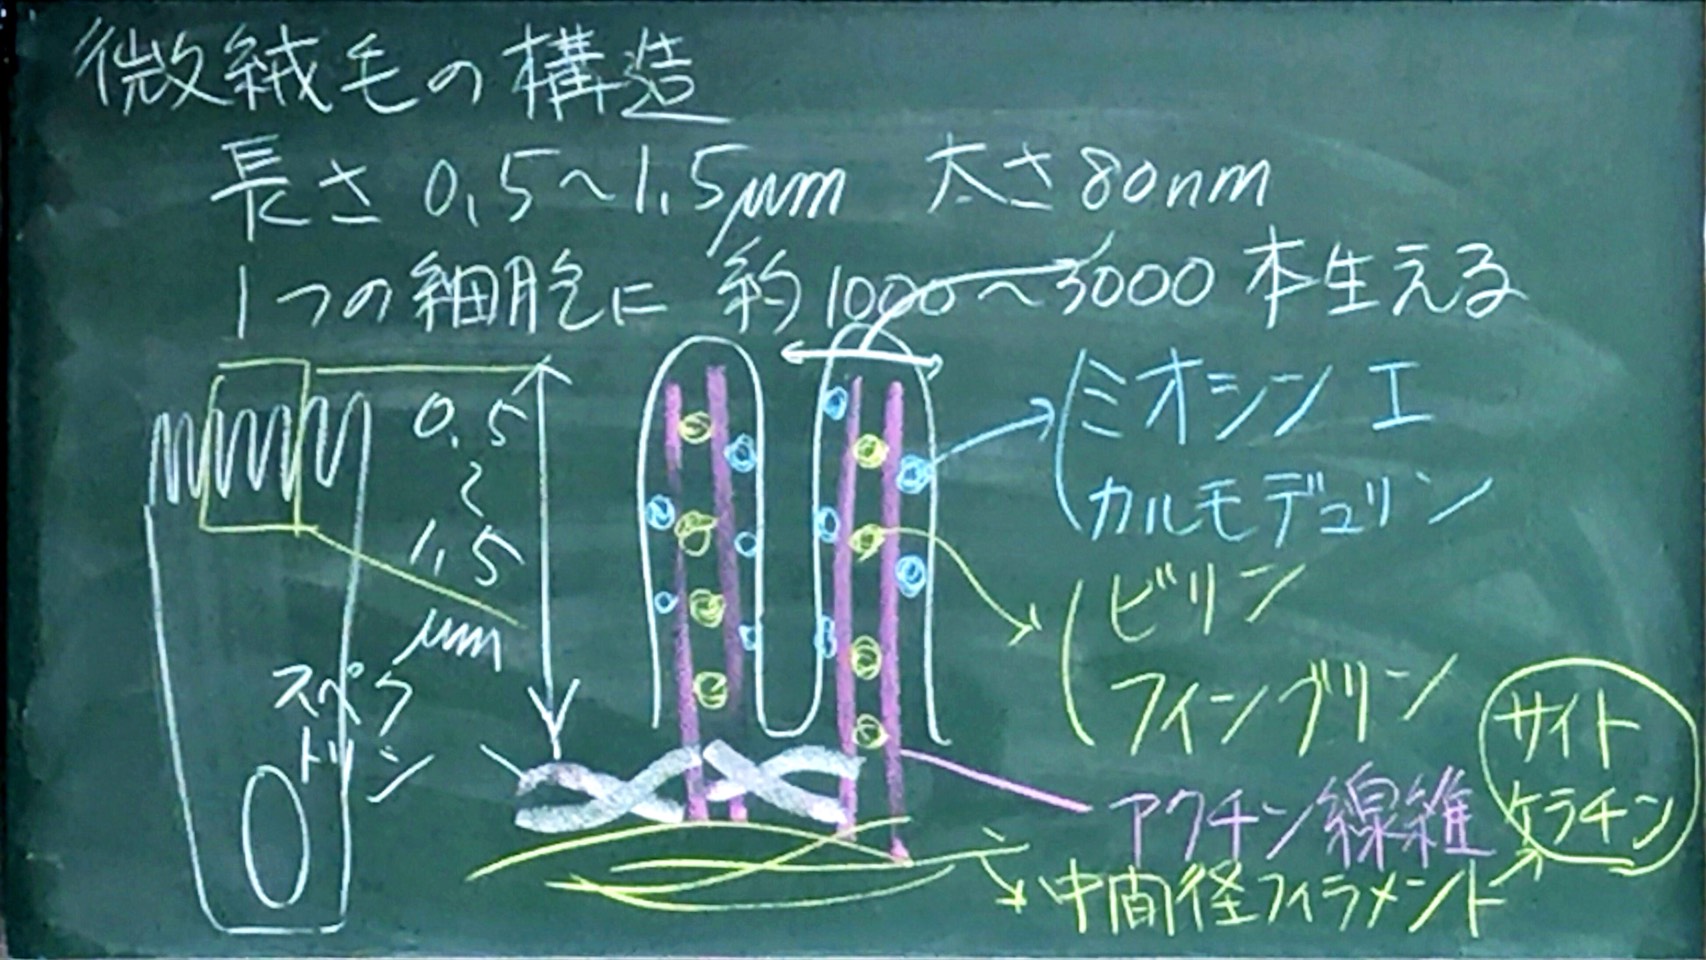 微絨毛の構造
長さ 0.5~1.5μm 太さ80nm
1つの細胞に 約1000~3000本生える
0.5
~
1.5
μm
スペク
トリン
ミオシン I
カルモデュリン
ビリン
フィンブリン
アクチン線維
中間径フィラメント
サイト
ケラチン